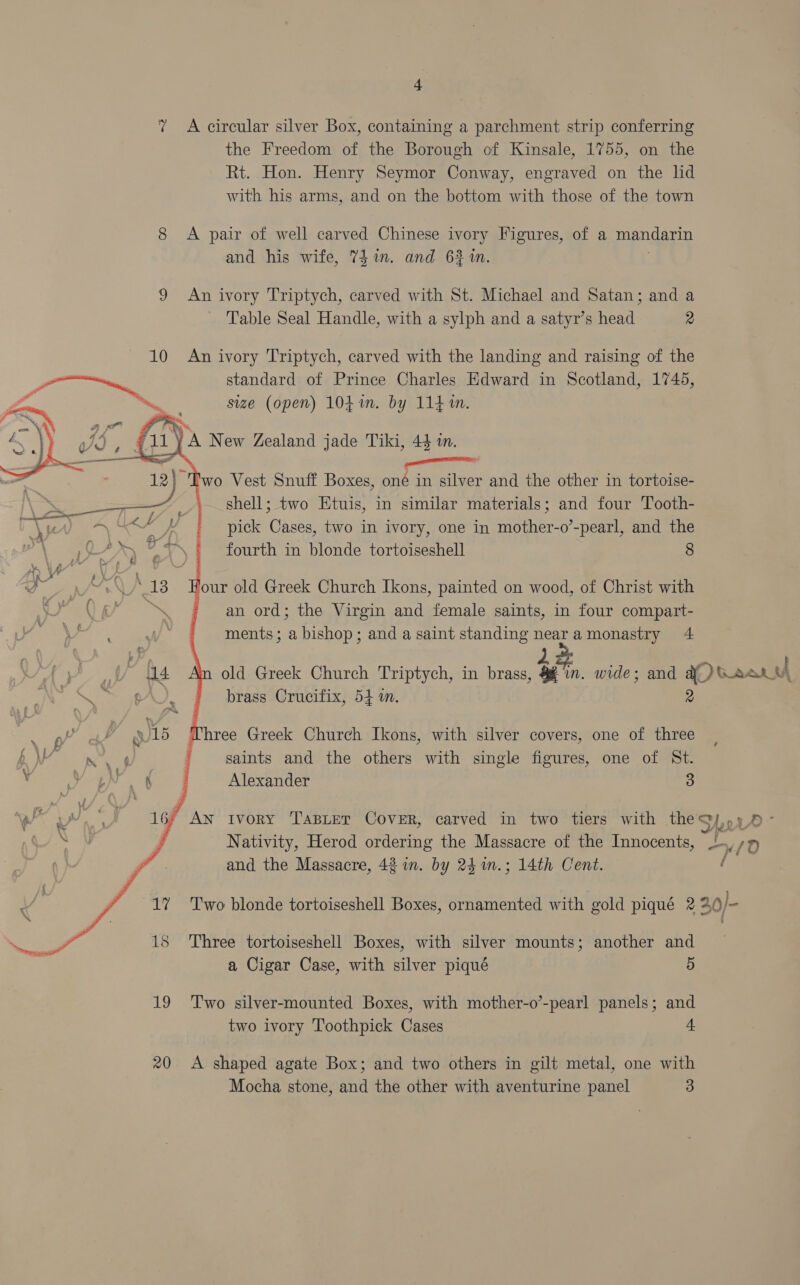 4
7 A circular silver Box, containing a parchment strip conferring
the Freedom of the Borough of Kinsale, 1755, on the
Rt. Hon. Henry Seymor Conway, engraved on the lid
with his arms, and on the bottom with those of the town
8 A pair of well carved Chinese ivory Figures, of a mandarin
and his wife, 7½ in. and 6¾ in.
9 An ivory Triptych, carved with St. Michael and Satan; and a
Table Seal Handle, with a sylph and a satyr's head 2
10 An ivory Triptych, carved with the landing and raising of the
standard of Prince Charles Edward in Scotland, 1745,
size (open) 10¼ in. by 11¼ in.
11 A New Zealand jade Tiki, 4½ in.
12 Two Vest Snuff Boxes, one in silver and the other in tortoise-
shell; two Etuis, in similar materials; and four Tooth-
pick Cases, two in ivory, one in mother-o'-pearl, and the
fourth in blonde tortoiseshell 8
13 Four old Greek Church Ikons, painted on wood, of Christ with
an ord; the Virgin and female saints, in four compart-
ments; a bishop; and a saint standing near a monastry 4
14 An old Greek Church Triptych, in brass, in. wide; and a
brass Crucifix, 5¼ in. 2
15 Three Greek Church Ikons, with silver covers, one of three
saints and the others with single figures, one of St.
Alexander 3
16 AN IVORY TABLET COVER, carved in two tiers with the
Nativity, Herod ordering the Massacre of the Innocents,
and the Massacre, 4¾ in. by 2½ in.; 14th Cent.
17 Two blonde tortoiseshell Boxes, ornamented with gold piqué 2 30/-
18 Three tortoiseshell Boxes, with silver mounts; another and
a Cigar Case, with silver piqué 5
19 Two silver-mounted Boxes, with mother-o'-pearl panels; and
two ivory Toothpick Cases 4
20 A shaped agate Box; and two others in gilt metal, one with
Mocha stone, and the other with aventurine panel 3